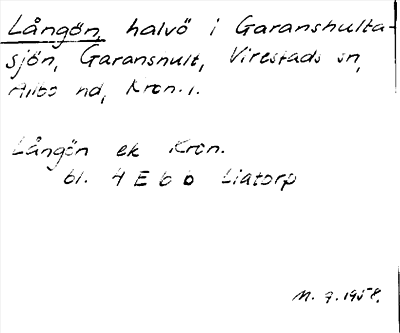 Långön, halvö i Garanshulta-
sjön, Garanshult, Virestads sn,
Allbo hd, Kron. l.
Långön ek Kron.
bl. 4 E 6 b Liatorp
M. 7. 1958.